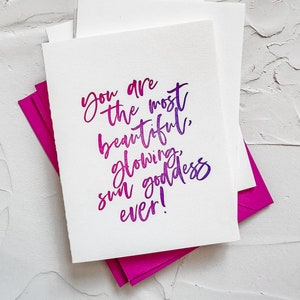 You are
the most
beautiful,
glowing,
sun goddess
ever!